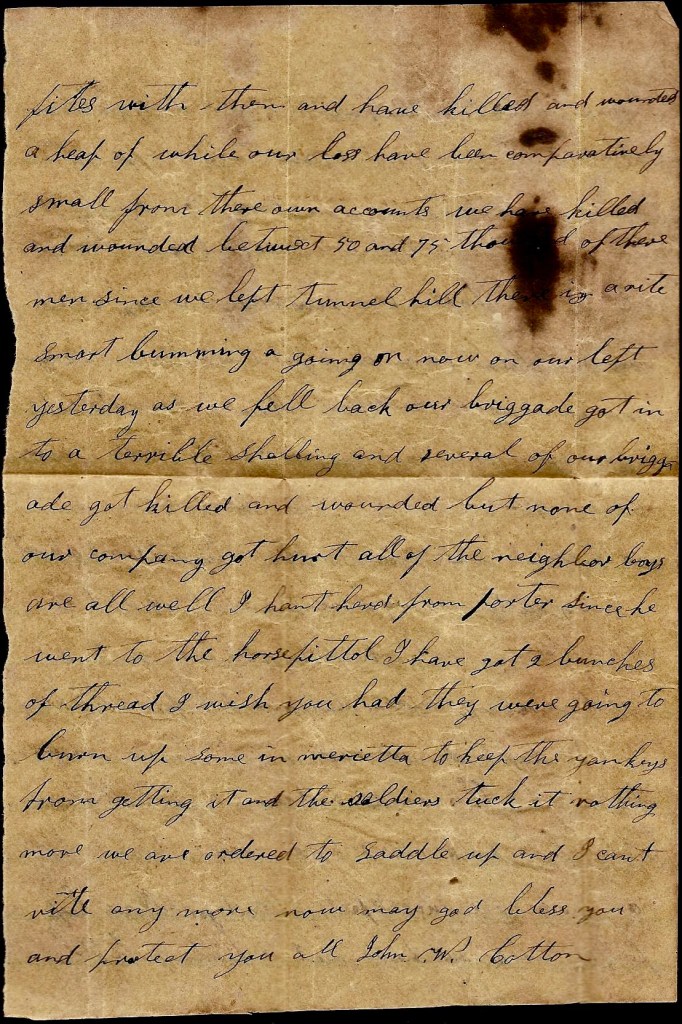 fites with them and have killed and wounded
a heap of while our loss have been comparatively
small from there own accounts we have killed
and wounded betwext 50 and 75 thousand of there
men since we left tunnel hill there is a rite
smart bumming a going on now on our left
yesterday as we fell back our briggade got in
to a terrible shelling and several of our brigg
ade got killed and wounded but none of
our company got hurt all of the neighbor boys
are all well I hant herd from porter since he
went to the horsepittol I have got 2 bunches
of thread I wish you had they were going to
burn up some in merietta to keep the yankys
from getting it and the soldiers tuck it nothing
more we are ordered to saddle up and I cant
rite any more now may god bless you
and protect you all John W. Cotton